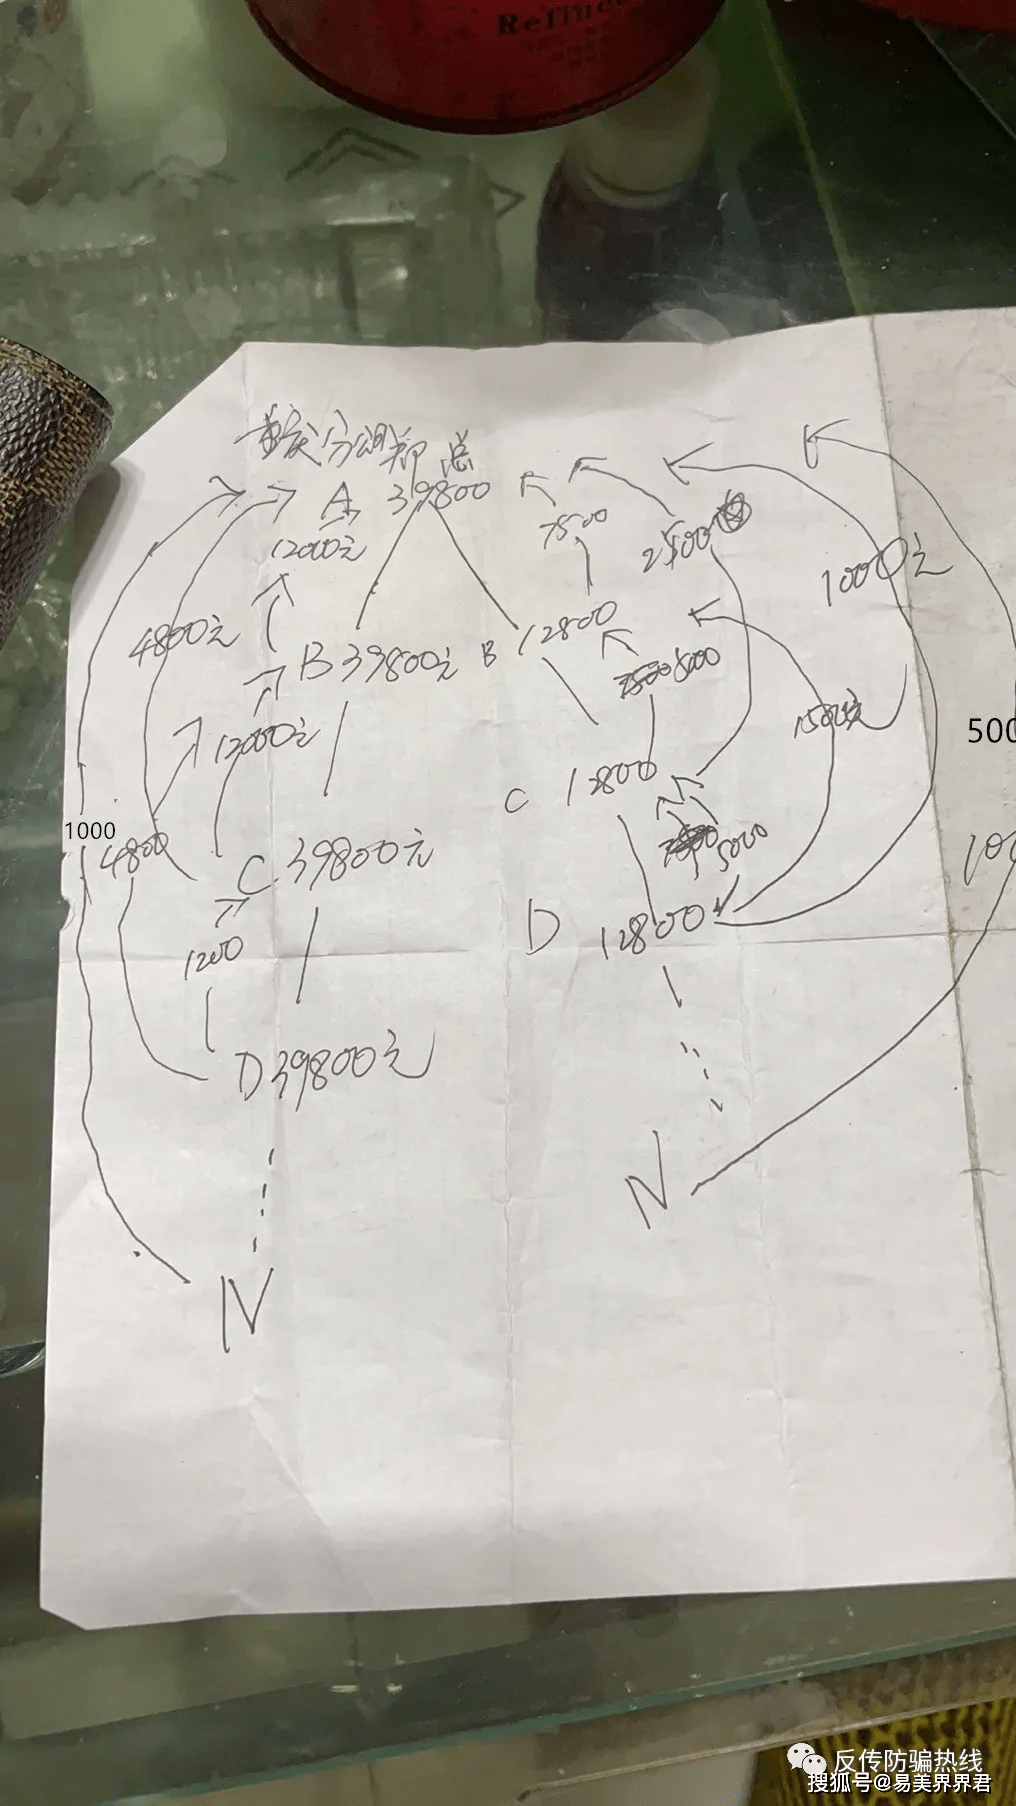 Refined
重庆分公司郑总
A 39800
7800
2500
12000元
1000元
4800元
B 39800元
B 12800
5000
12000元
1500元
500
C 12800
1000
4800
C 39800元
5000
100
D 12800
1200
D 39800元
N
N
反传防骗热线
搜狐号@易美界界君